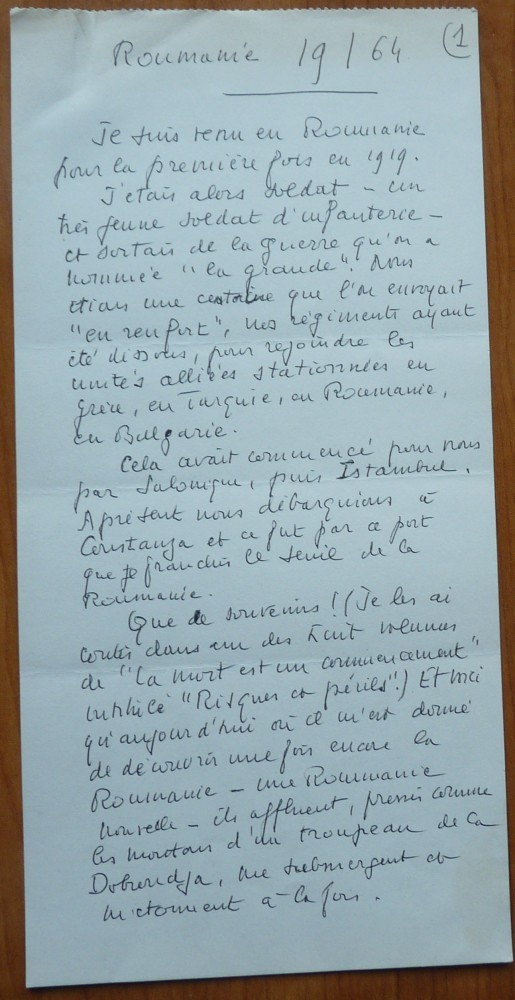 (1
Roumanie 19/64
Je suis venu en Roumanie
pour la première fois en 1919.
J'étais alors soldat - un
très jeune soldat d'infanterie -
et sortais de la guerre qu'on a
nommée "la grande". Nous
étions une centaine que l'on envoyait
"en renfort", nos régiments ayant
été dissous, pour rejoindre les
unités alliées stationnées en
Grèce, en Turquie, en Roumanie,
en Bulgarie.
Cela avait commencé pour nous
par Salonique, puis Istambul.
A présent nous débarquions à
Constanza et ce fut par ce port
que je franchis le seuil de la
Roumanie.
Que de souvenirs ! (Je les ai
contés dans un des huit volumes
de "La mort est un commencement"
intitulé "Risques et périls".) Et voici
qu'aujourd'hui où il m'est donné
de découvrir une fois encore la
Roumanie - une Roumanie
nouvelle - ils affluent, pressés comme
les moutons d'un troupeau de la
Dobroudja, me submergent et
m'étonnent à la fois.